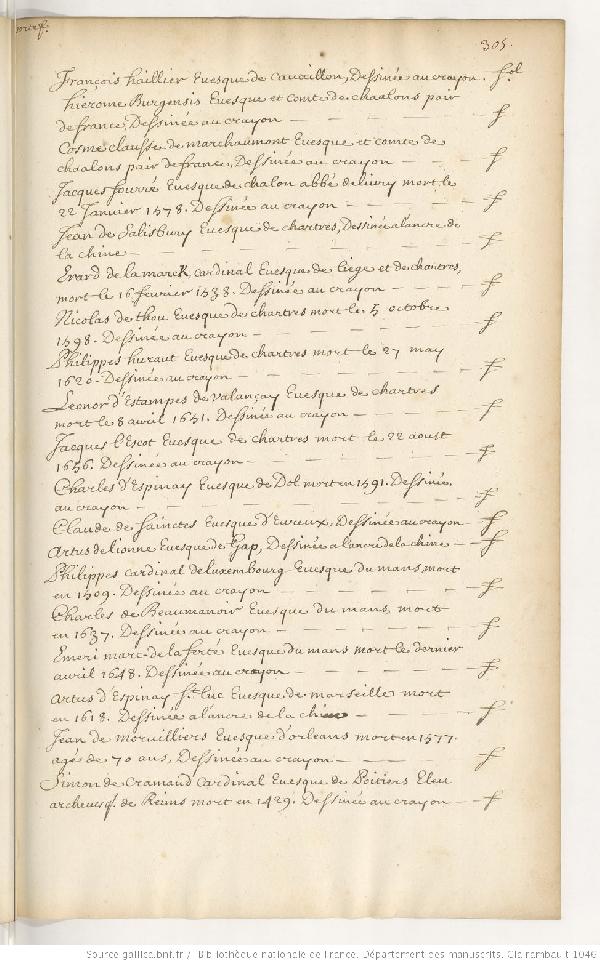 305.
François hallier Evesque de Cavaillon, Dessinée au crayon. fol
hiérome Burgensis Evesque et Comte de chaalons pair
de france, Dessinée au crayon — f
Cosme clausse de marchaumont Evesque et comte de
chaalons pair de france, Dessinée au crayon — f
Jacques fourré Evesque de chalon abbé de livry mort le
22 Janvier 1578. Dessinée au crayon — f
Jean de Salisbury Evesque de chartres, Dessinée a l'ancre de
la chine — f
Erard de la marck, cardinal Evesque de Liege et de chartres,
mort le 16 fevrier 1538. Dessinée au crayon — f
Nicolas de thou Evesque de chartres mort le 5 octobre
1598. Dessinée au crayon — f
Philippes huraut Evesque de chartres mort le 27 may
1620. Dessinée au crayon — f
Leonor d'Estampes de valançay Evesque de chartres
mort le 8 avril 1651. Dessinée au crayon — f
Jacques l'Escot Evesque de chartres mort le 22 aoust
1656. Dessinée au crayon — f
Charles d'Espinay Evesque de Dol mort en 1591. Dessinée
au crayon — f
Claude de Sainctes Evesque d'Evreux, Dessinée au crayon — f
Artus de lionne Evesque de Gap, Dessinée a l'ancre de la chine — f
Philippes cardinal de luxembourg Evesque du mans, mort
en 1509. Dessinée au crayon — f
Charles de Beaumanoir Evesque du mans mort
en 1637. Dessinée au crayon — f
Emeri marc de la ferté Evesque du mans mort le dernier
avril 1648. Dessinée au crayon — f
Artus d'Espinay St. Luc Evesque de marseille mort
en 1618. Dessinée a l'ancre de la chine — f
Jean de morvilliers Evesque d'orleans mort en 1577.
agés de 70 ans, Dessinée au crayon — f
Simon de Cramaud Cardinal Evesque de Poitiers Eleu
archevesq. de Reims mort en 1429. Dessinée au crayon — f
Source gallica.bnf.fr / Bibliothèque nationale de France. Département des manuscrits. Clairambault 1046